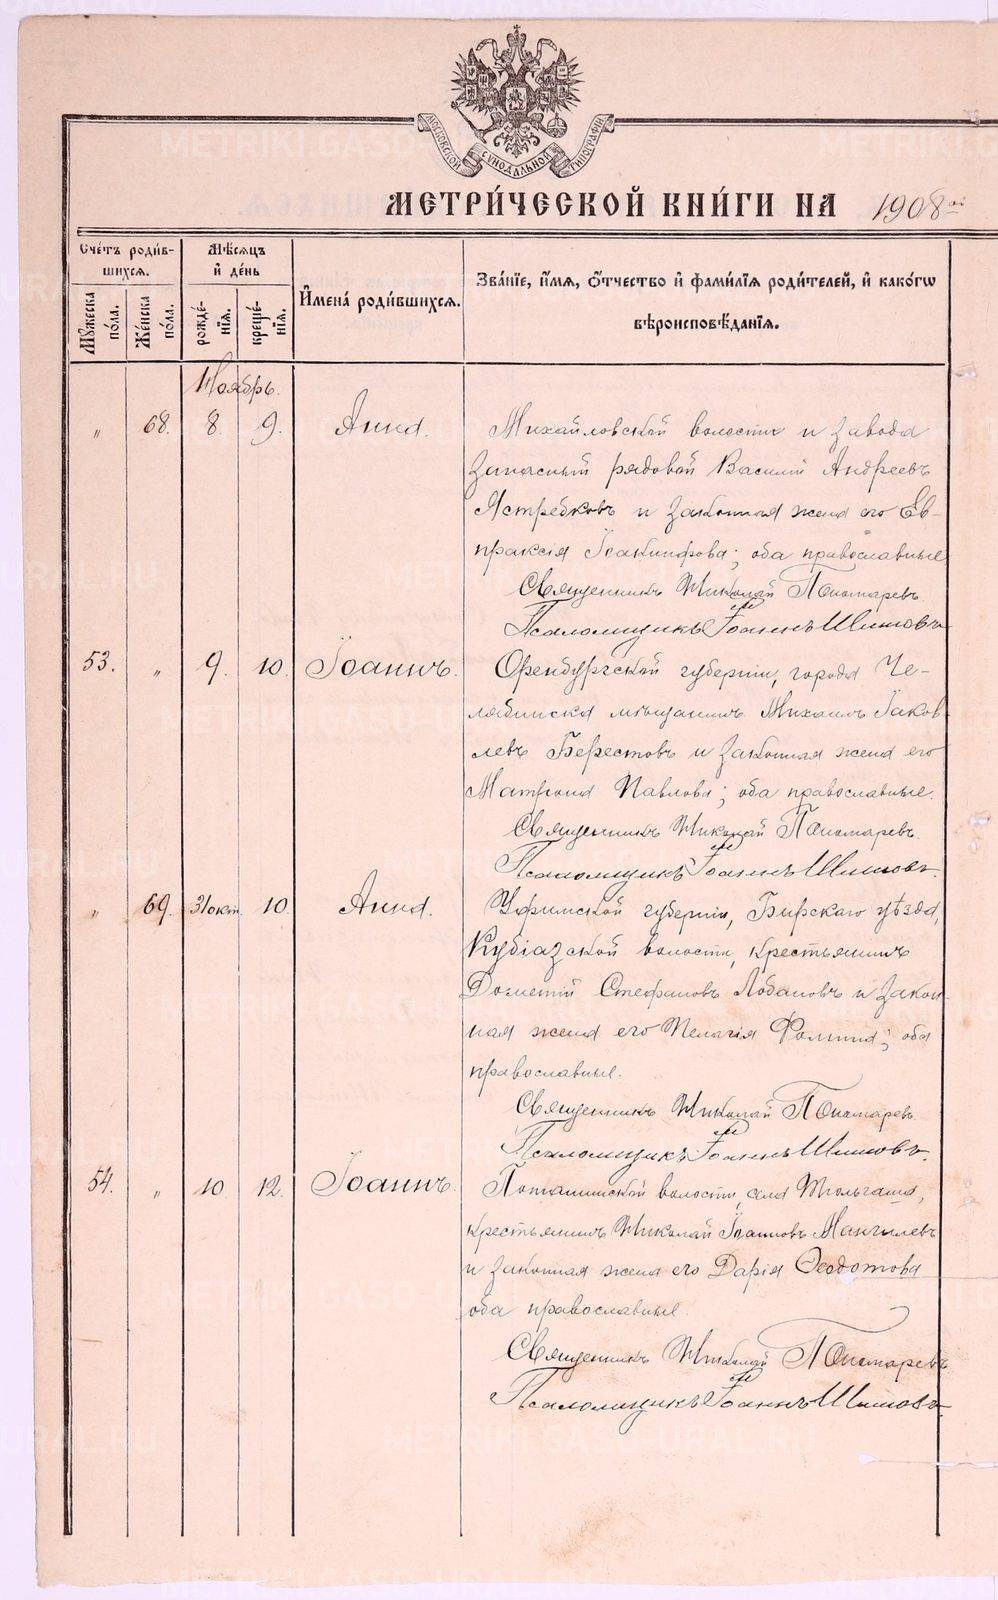 МОСКОВСКОЙ СѴНОДАЛЬНОЙ ТИПОГРАФИИ
МЕТРИ́ЧЕСКОЙ КНИ́ГИ НА 1908ой
Сче́тъ роди́вшихсѧ.
Мꙋ́жеска по́ла.
Же́нска по́ла.
Мѣ́сѧцъ и҆ де́нь
рожде́нїѧ.
креще́нїѧ.
И҆мена̀ роди́вшихсѧ.
Зва́нїе, и҆́мѧ, ѻ҆́тчество и҆ фами́лїѧ роди́телей, и҆ како́гѡ
вѣроисповѣ́данїѧ.
Ноябрь.
" 68. 8. 9. Анна. Михайловской волости и завода
запасный рядовой Василий Андреевъ
Ястребковъ и законная жена его Ев-
праксія Іоакинфова; оба православные
Священникъ Николай Пономаревъ
Псаломщикъ Іоаннъ Шишовъ
53. " 9. 10. Іоаннъ. Оренбургской губерніи, города Че-
лябинска мѣщанинъ Михаилъ Іаков-
левъ Берестовъ и законная жена его
Матрона Павлова; оба православные.
Священникъ Николай Пономаревъ.
Псаломщикъ Іоаннъ Шишовъ.
" 69. 31 окт. 10. Анна. Уфимской губерніи, Бирскаго уѣзда,
Кубіазской волости, крестьянинъ
Дометій Стефановъ Лобановъ и закон-
ная жена его Пелагія Фомина; оба
православные.
Священникъ Николай Пономаревъ
Псаломщикъ Іоаннъ Шишовъ.
54. " 10. 12. Іоаннъ. Поташинской волости, села Тюльгаша,
крестьянинъ Николай Іоанновъ Мангилевъ
и законная жена его Дарія Ѳеодотова
оба православные.
Священникъ Николай Пономаревъ
Псаломщикъ Іоаннъ Шишовъ.
METRIKI.GASO-URAL.RU